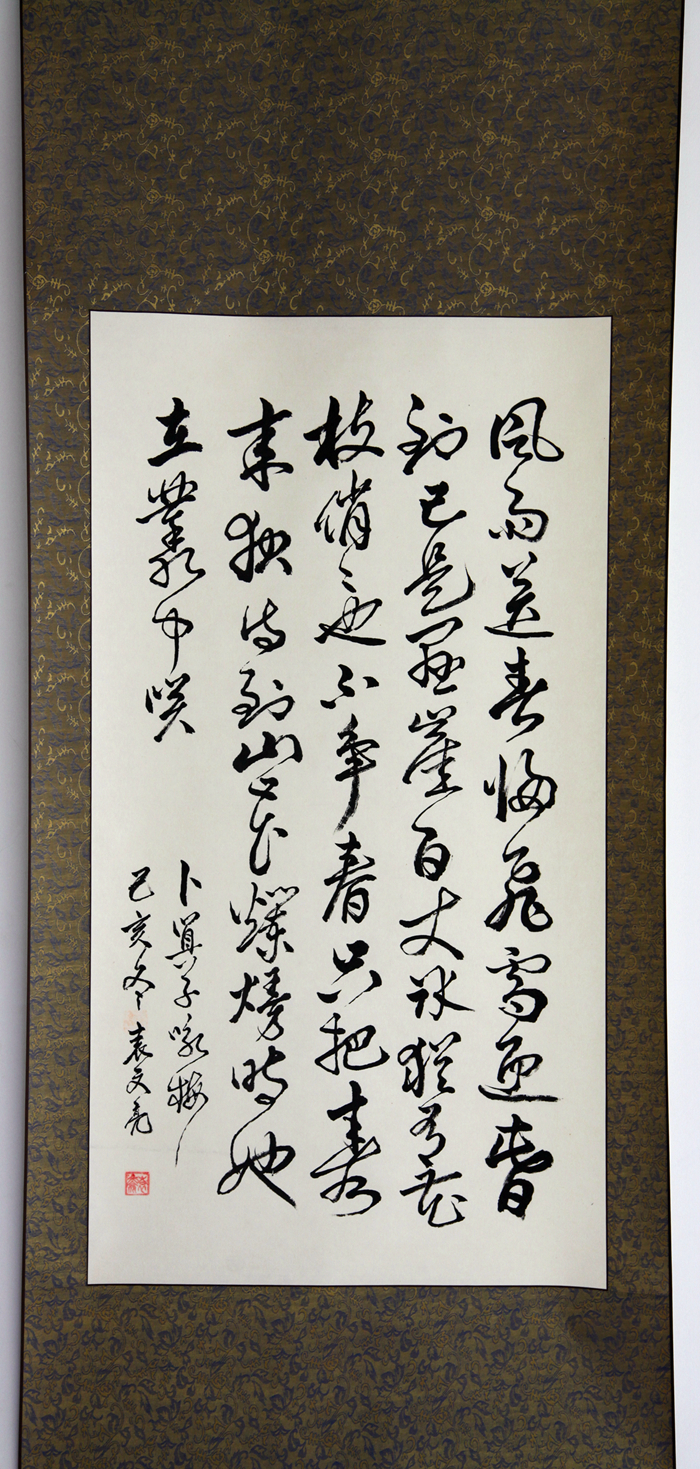 風雨送春歸飛雪迎春
到已是懸崖百丈冰猶有花
枝俏〻也不爭春只把春
来報待到山花爛熳時她
在叢中咲
卜算子咏梅
己亥冬 袁文亮